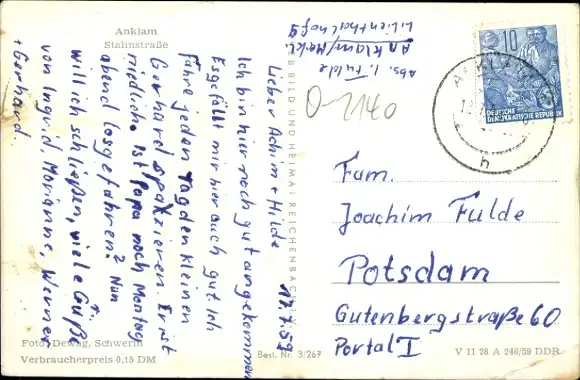 Anklam
Stalinstraße
Abs. I. Fulde
Anklam/Meckl.
Lilienthalhof 9
0-2140
17.7.59
Lieber Achim + Hilde
Ich bin hier noch gut angekommen
Es gefällt mir hier auch gut. Ich
fahre jeden Tag den kleinen
Gerhard spazieren. Er ist
niedlich. Ist Papa noch Montag
abend losgefahren? Nun
will ich schließen, viele Grüße
von Ingrid, Marianne, Werner
+ Gerhard.
BILD UND HEIMAT REICHENBACH
10
DEUTSCHE
DEMOKRATISCHE REPUBLIK
h
Fam.
Joachim Fulde
Potsdam
Gutenbergstraße 60
Portal I
Foto: Dewag, Schwerin
Verbraucherpreis 0,15 DM
Best. Nr. 3/267
V 11 28 A 246/59 DDR